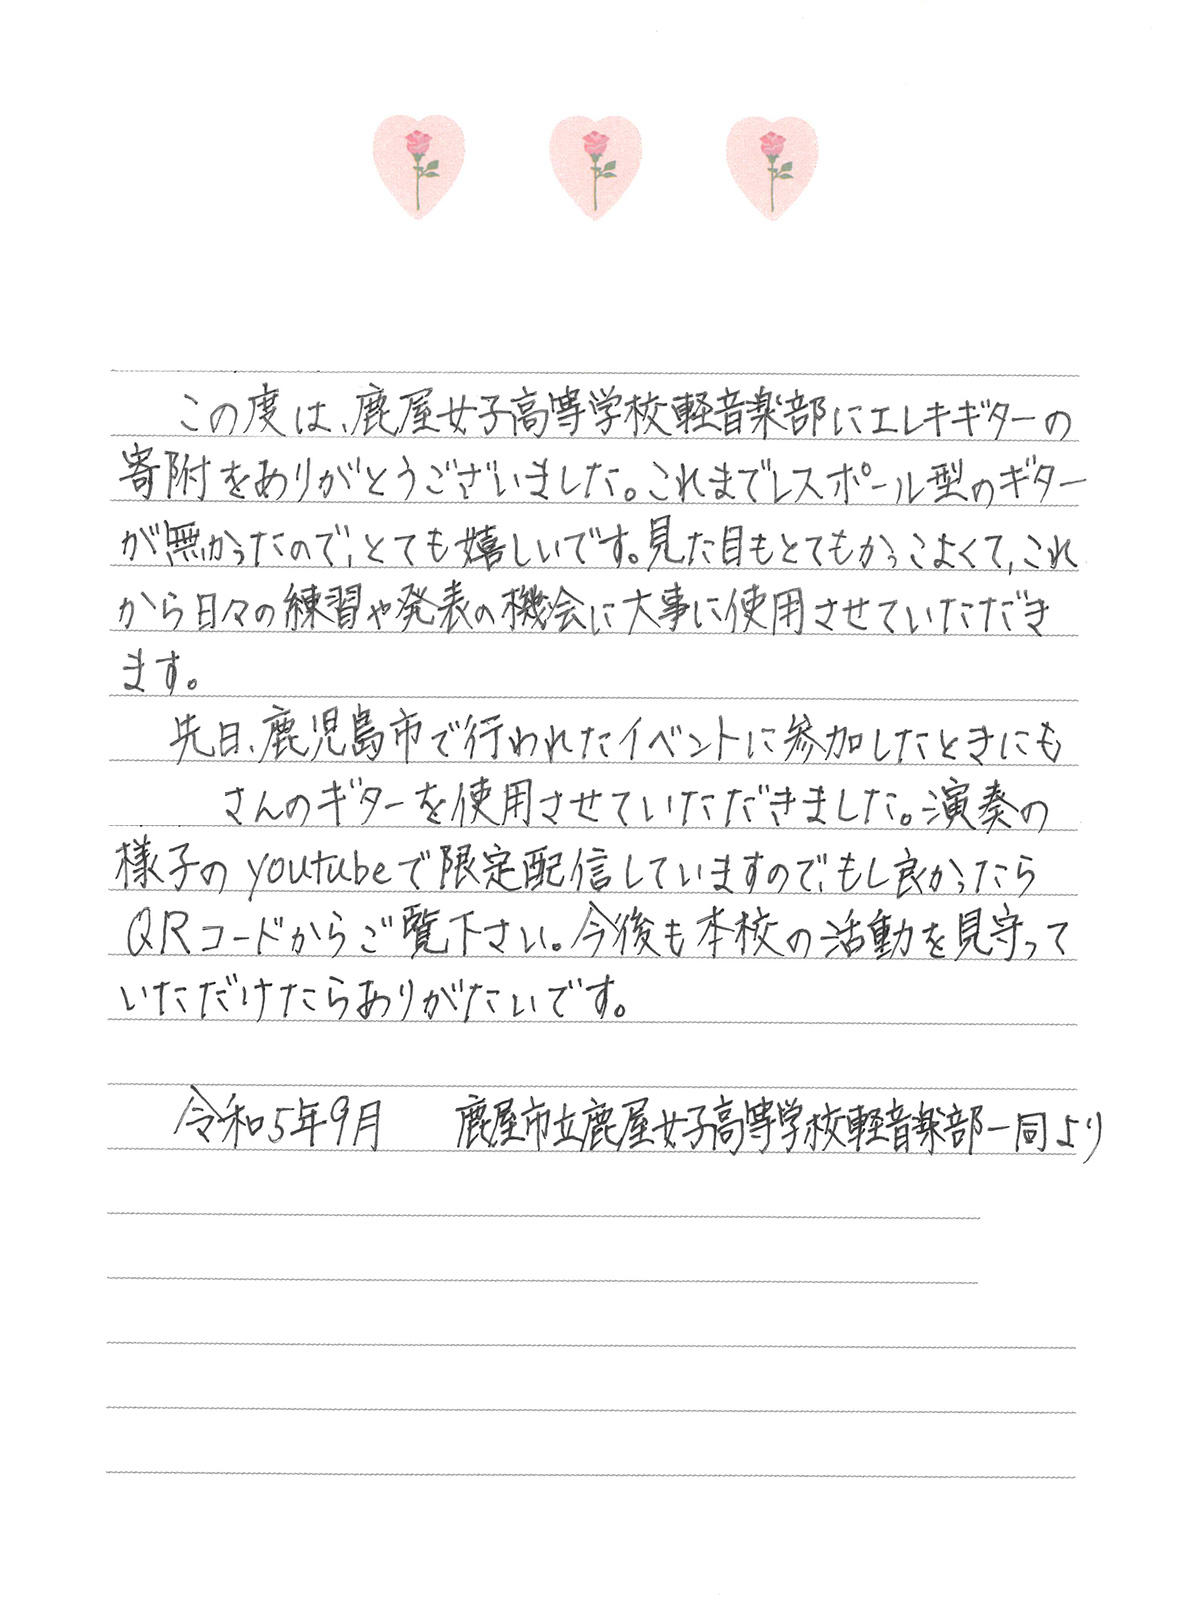 この度は、鹿屋女子高等学校軽音楽部にエレキギターの
寄附をありがとうございました。これまでレスポール型のギター
が無かったので、とても嬉しいです。見た目もとてもかっこよくて、これ
から日々の練習や発表の機会に大事に使用させていただき
ます。
先日、鹿児島市で行われたイベントに参加したときにも
さんのギターを使用させていただきました。演奏の
様子のyoutubeで限定配信していますので、もし良かったら
QRコードからご覧下さい。今後も本校の活動を見守って
いただけたらありがたいです。
令和5年9月　鹿屋市立鹿屋女子高等学校軽音楽部一同より